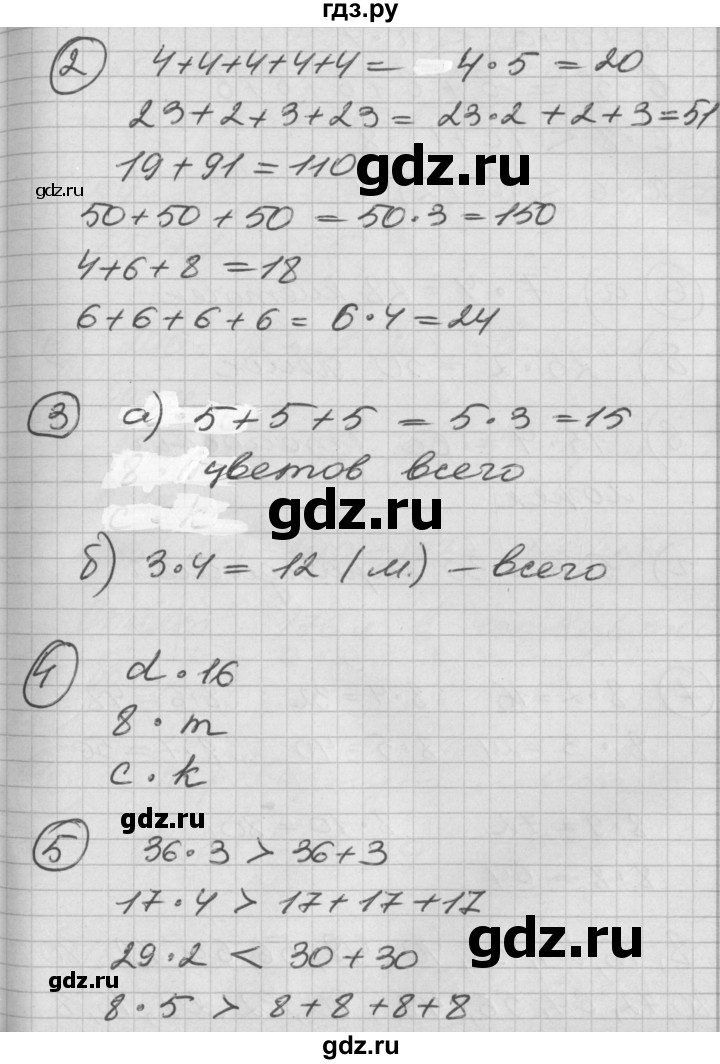 гдз.ру
2 4+4+4+4+4= 4·5 = 20
23+2+3+23= 23·2+2+3=51
19+91=110
gdz.ru
gdz.ru
50+50+50=50·3=150
4+6+8=18
6+6+6+6=6·4=24
3 а) 5+5+5=5·3=15
цветов всего
gdz.ru
б) 3·4=12 (м.) - всего
4 d·16
8·m
c·k
gdz.ru
5 36·3>36+3
17·4>17+17+17
gdz.ru
29·2<30+30
gdz.ru
8·5>8+8+8+8
gdz.ru